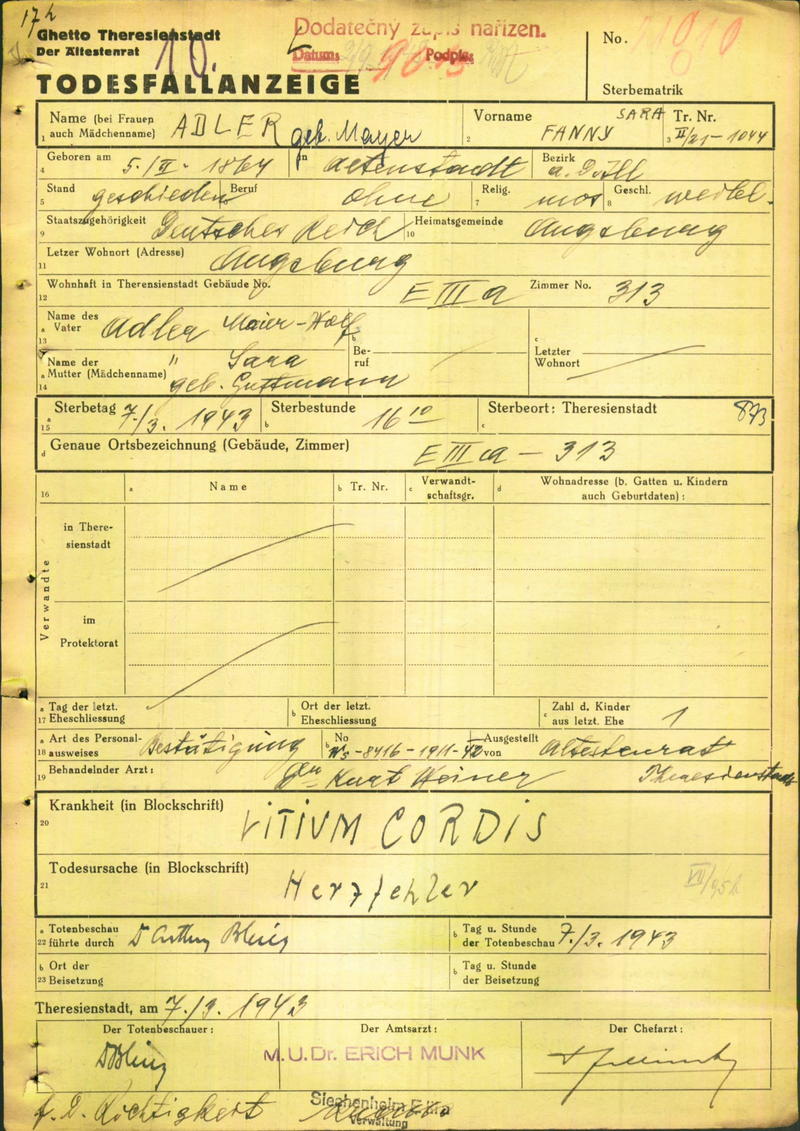 17h
Ghetto Theresienstadt
Der Ältestenrat
10.
Dodatečný zápis nařízen.
Datum: Podpis:
No.
Sterbematrik
TODESFALLANZEIGE
Name (bei Frauen auch Mädchenname) ADLER geb. Mayer
1
Vorname FANNY SARA
2
Tr. Nr. II/21-1044
3
Geboren am 5./II. 1864 in Altenstadt Bezirk a. D. Ill
4
Stand geschieden Beruf ohne Relig. mos Geschl. weibl.
5 7 8
Staatszugehörigkeit Deutsches Reich Heimatsgemeinde Augsburg
9 10
Letzer Wohnort (Adresse) Augsburg
11
Wohnhaft in Theresienstadt Gebäude No. E III a Zimmer No. 313
12
Name des Vater Adler Maier-Wolf
a 13 b c
Name der Mutter (Mädchenname) " Sara geb. Guttmann
a 14
Beruf
Letzter Wohnort
Sterbetag 7./3. 1943 Sterbestunde 16 10 Sterbeort: Theresienstadt 873
a 15 b c
Genaue Ortsbezeichnung (Gebäude, Zimmer) E III a - 313
d
16 a Name b Tr. Nr. c Verwandtschaftsgr. d Wohnadresse (b. Gatten u. Kindern auch Geburtdaten):
Verwandte
in Theresienstadt
im Protektorat
a 17 Tag der letzt. Eheschliessung b Ort der letzt. Eheschliessung c Zahl d. Kinder aus letzt. Ehe 1
a 18 Art des Personalausweises Bestätigung b No -8416-1911-42 Ausgestellt von Ältestenrat
19 Behandelnder Arzt: Dr Kurt Weiner Theresienstadt
Krankheit (in Blockschrift) VITIUM CORDIS
20
Todesursache (in Blockschrift) Herzfehler
21
a 22 Totenbeschau führte durch b Tag u. Stunde der Totenbeschau 7./3. 1943
b 23 Ort der Beisetzung b Tag u. Stunde der Beisetzung
Theresienstadt, am 7./3. 1943
Der Totenbeschauer: Der Amtsarzt: Der Chefarzt:
M.U.Dr. ERICH MUNK
f. d. Richtigkeit
Verwaltung